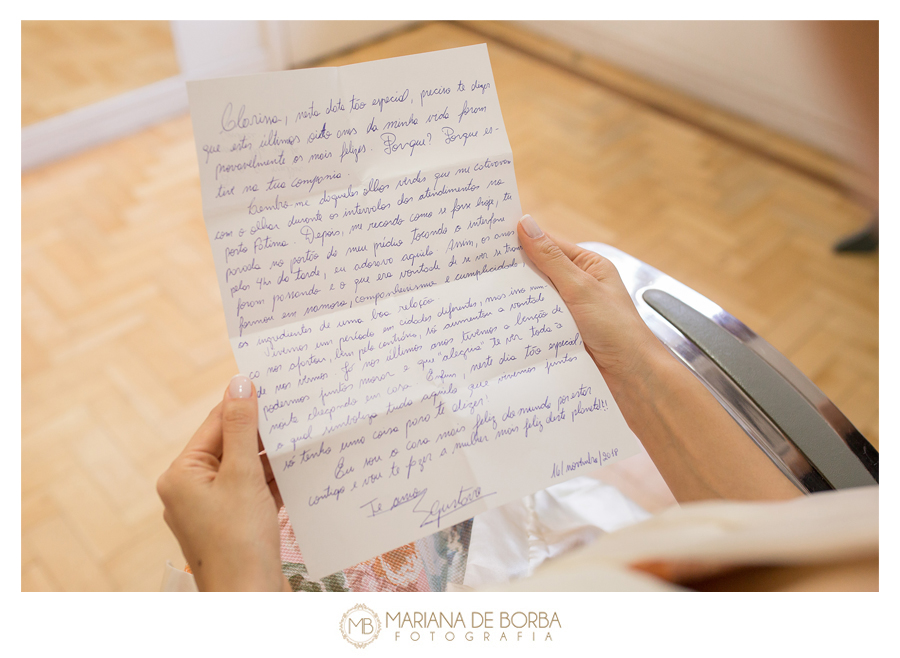 Clarina, nesta data tão especial, preciso te dizer
que estes últimos oito anos da minha vida foram
provavelmente os mais felizes. Porque? Porque es-
tive na tua companhia.
Lembro-me daqueles olhos verdes que me cativavam
com o olhar durante os intervalos dos atendimentos na
ponto Fátima. Depois, me recordo como se fosse hoje, tu
parada no portão do meu prédio tocando o interfone
pelas 4hs da tarde, eu adorava aquilo. Assim, os anos
foram passando e o que era vontade de se ver se trans
formou em namoro, companheirismo e cumplicidade,
os ingredientes de uma boa relação.
Vivemos um período em cidades diferentes, mas isso nun-
ca nos afastou, bem pelo contrário, só aumentou a vontade
de nos vermos. Já nos últimos anos tivemos a benção de
podermos juntos morar e que "alegria" te ver toda a
noite chegando em casa. Enfim, neste dia tão especial,
o qual simboliza tudo aquilo que vivemos juntos
só tenho uma coisa para te dizer:
Eu sou o cara mais feliz do mundo por estar
contigo e vou te fazer a mulher mais feliz deste planeta!!!
Te amo
Gustavo
16/novembro/2018
MB
MARIANA DE BORBA
FOTOGRAFIA